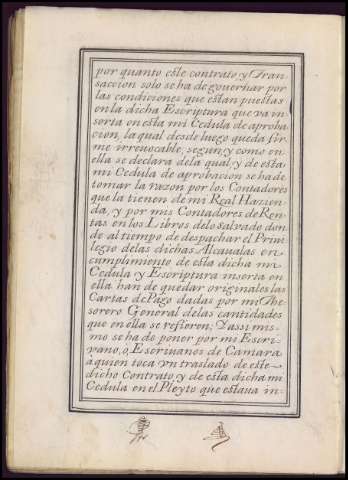 por quanto este contrato y Tran-
saccion solo se ha de gouernar por
las condiciones que estan puestas
en la dicha Escriptura que va in-
serta en esta mi Cedula de aproba
cion, la qual desde luego queda fir-
me irreuocable, segun, y como en
ella se declara de la qual, y de esta
mi Cedula de aprobacion se ha de
tomar la razon por los Contadores
que la tienen de mi Real Hazien-
da, y por mis Contadores de Ren-
tas en los Libros de lo saluado don
de al tiempo de despachar el Priui
legio de las dichas Alcaualas en
cumplimiento de esta dicha mi
Cedula y Escriptura inserta en
ella han de quedar originales las
Cartas de Pago dadas por mi The-
sorero General de las cantidades
que en ella se refieren; Y assi mis-
mo se ha de poner por mi Escri-
vano, o, Escriuanos de Camara
a quien toca vn traslado de este
dicho Contrato y de esta dicha mi
Cedula en el Pleyto que estaua in-